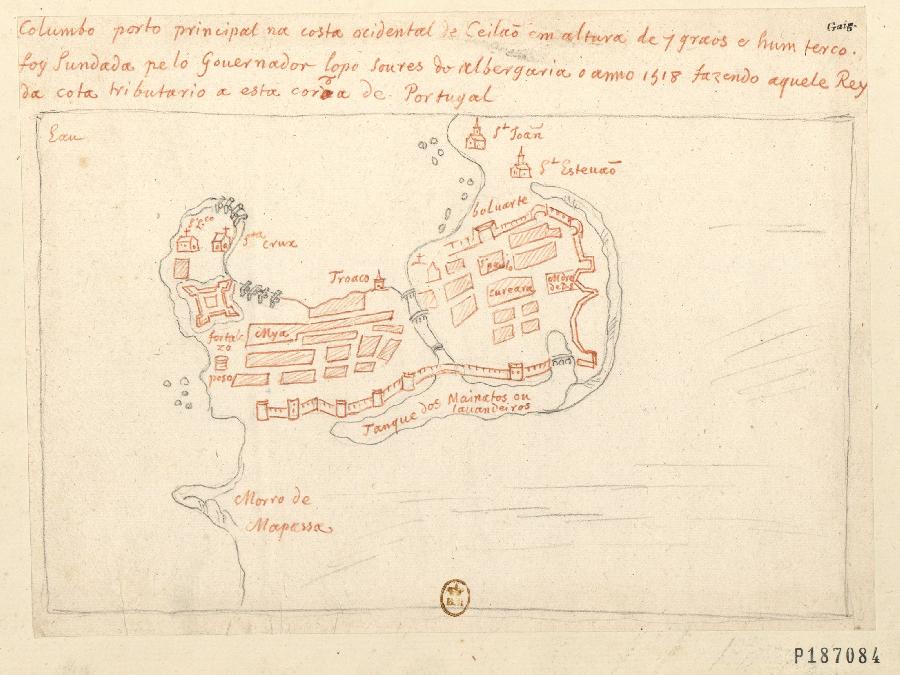 Columbo porto principal na costa ocidental de Ceilaõ em altura de 7 graos e hum terco.
foy fundada pelo Gouernador lopo soures de albergaria o anno 1518 fazendo aquele Rey
da cota tributario a esta coroa de Portugal
Gaig.
Eau
S.t Joañ
S.t Esteuaõ
baluarte
S.ta Crux
Troaco
fortale
za
Mya
poso
cureara
Tanque dos Mainatos ou
lauandeiros
Morro de
Mapassa
P187084